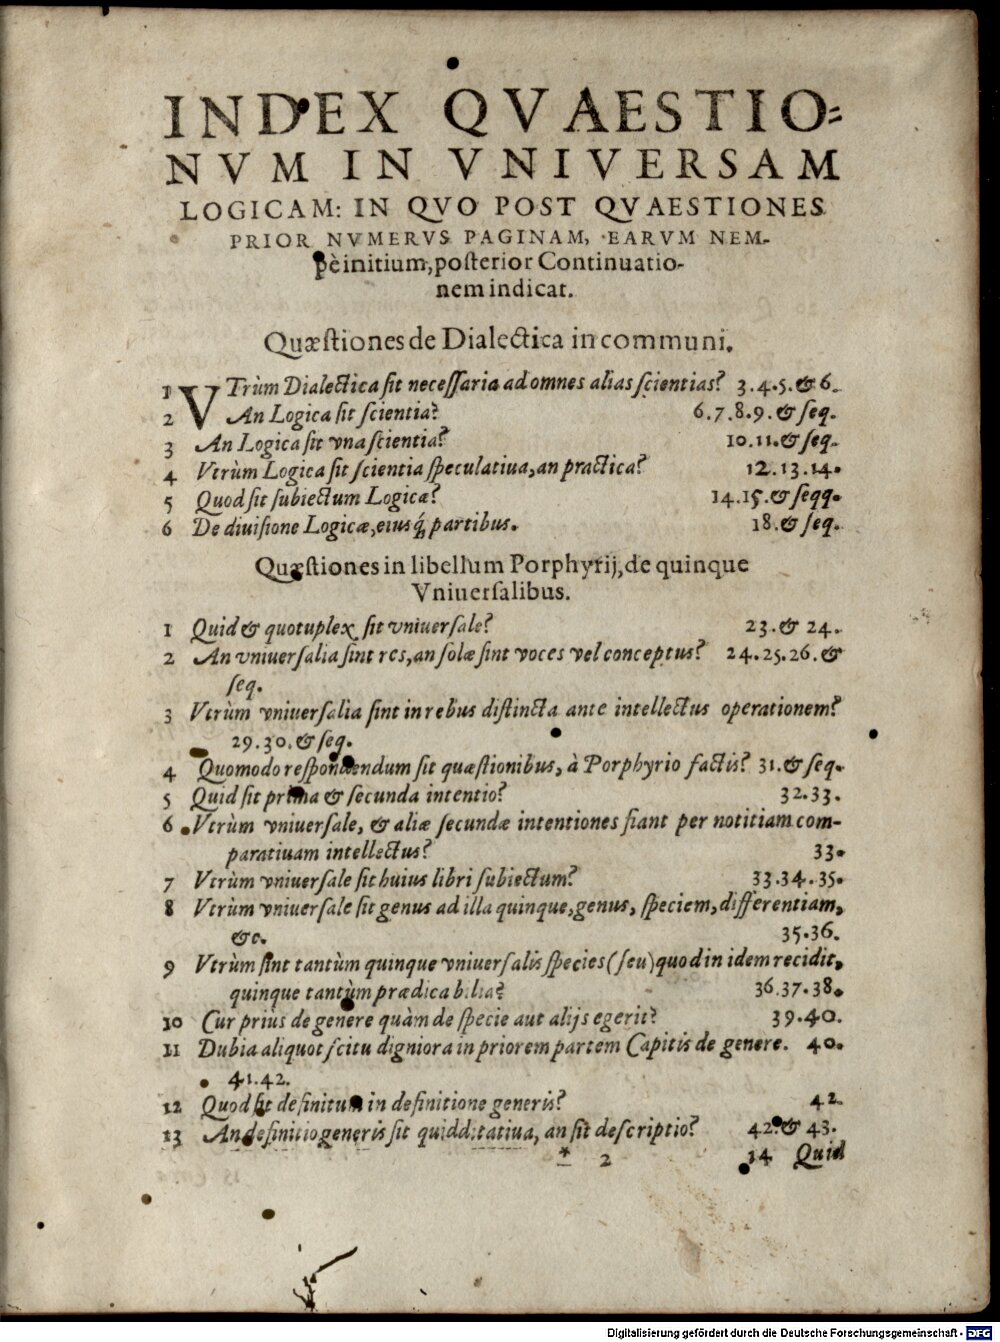 INDEX QVAESTIO=
NVM IN VNIVERSAM
LOGICAM: IN QVO POST QVAESTIONES
PRIOR NVMERVS PAGINAM, EARVM NEM-
pè initium, posterior Continuatio-
nem indicat.
Quæstiones de Dialectica in communi.
1 VTrùm Dialectica sit necessaria ad omnes alias scientias? 3.4.5. & 6.
2 An Logica sit scientia? 6.7.8.9. & seq.
3 An Logica sit vna scientia? 10.11. & seq.
4 Vtrùm Logica sit scientia speculatiua, an practica? 12.13.14.
5 Quod sit subiectum Logicæ? 14.15. & seqq.
6 De diuisione Logicæ, eiusq́; partibus. 18. & seq.
Quæstiones in libellum Porphyrij, de quinque
Vniuersalibus.
1 Quid & quotuplex sit vniuersale? 23. & 24.
2 An vniuersalia sint res, an solæ sint voces vel conceptus? 24.25.26. &
seq.
3 Vtrùm vniuersalia sint in rebus distincta ante intellectus operationem?
29.30. & seq.
4 Quomodo respondendum sit quæstionibus, à Porphyrio factis? 31. & seq.
5 Quid sit prima & secunda intentio? 32.33.
6 Vtrùm vniuersale, & aliæ secundæ intentiones fiant per notitiam com-
paratiuam intellectus? 33.
7 Vtrùm vniuersale sit huius libri subiectum? 33.34.35.
8 Vtrùm vniuersale sit genus ad illa quinque, genus, speciem, differentiam,
&c. 35.36.
9 Vtrùm sint tantùm quinque vniuersalis species (seu) quod in idem recidit,
quinque tantùm prædicabilia? 36.37.38.
10 Cur priùs de genere quàm de specie aut alijs egerit? 39.40.
11 Dubia aliquot scitu digniora in priorem partem Capitis de genere. 40.
41.42.
12 Quod sit definitum in definitione generis? 42.
13 An definitio generis sit quidditatiua, an sit descriptio? 42. & 43.
* 2 14 Quid
Digitalisierung gefördert durch die Deutsche Forschungsgemeinschaft - DFG